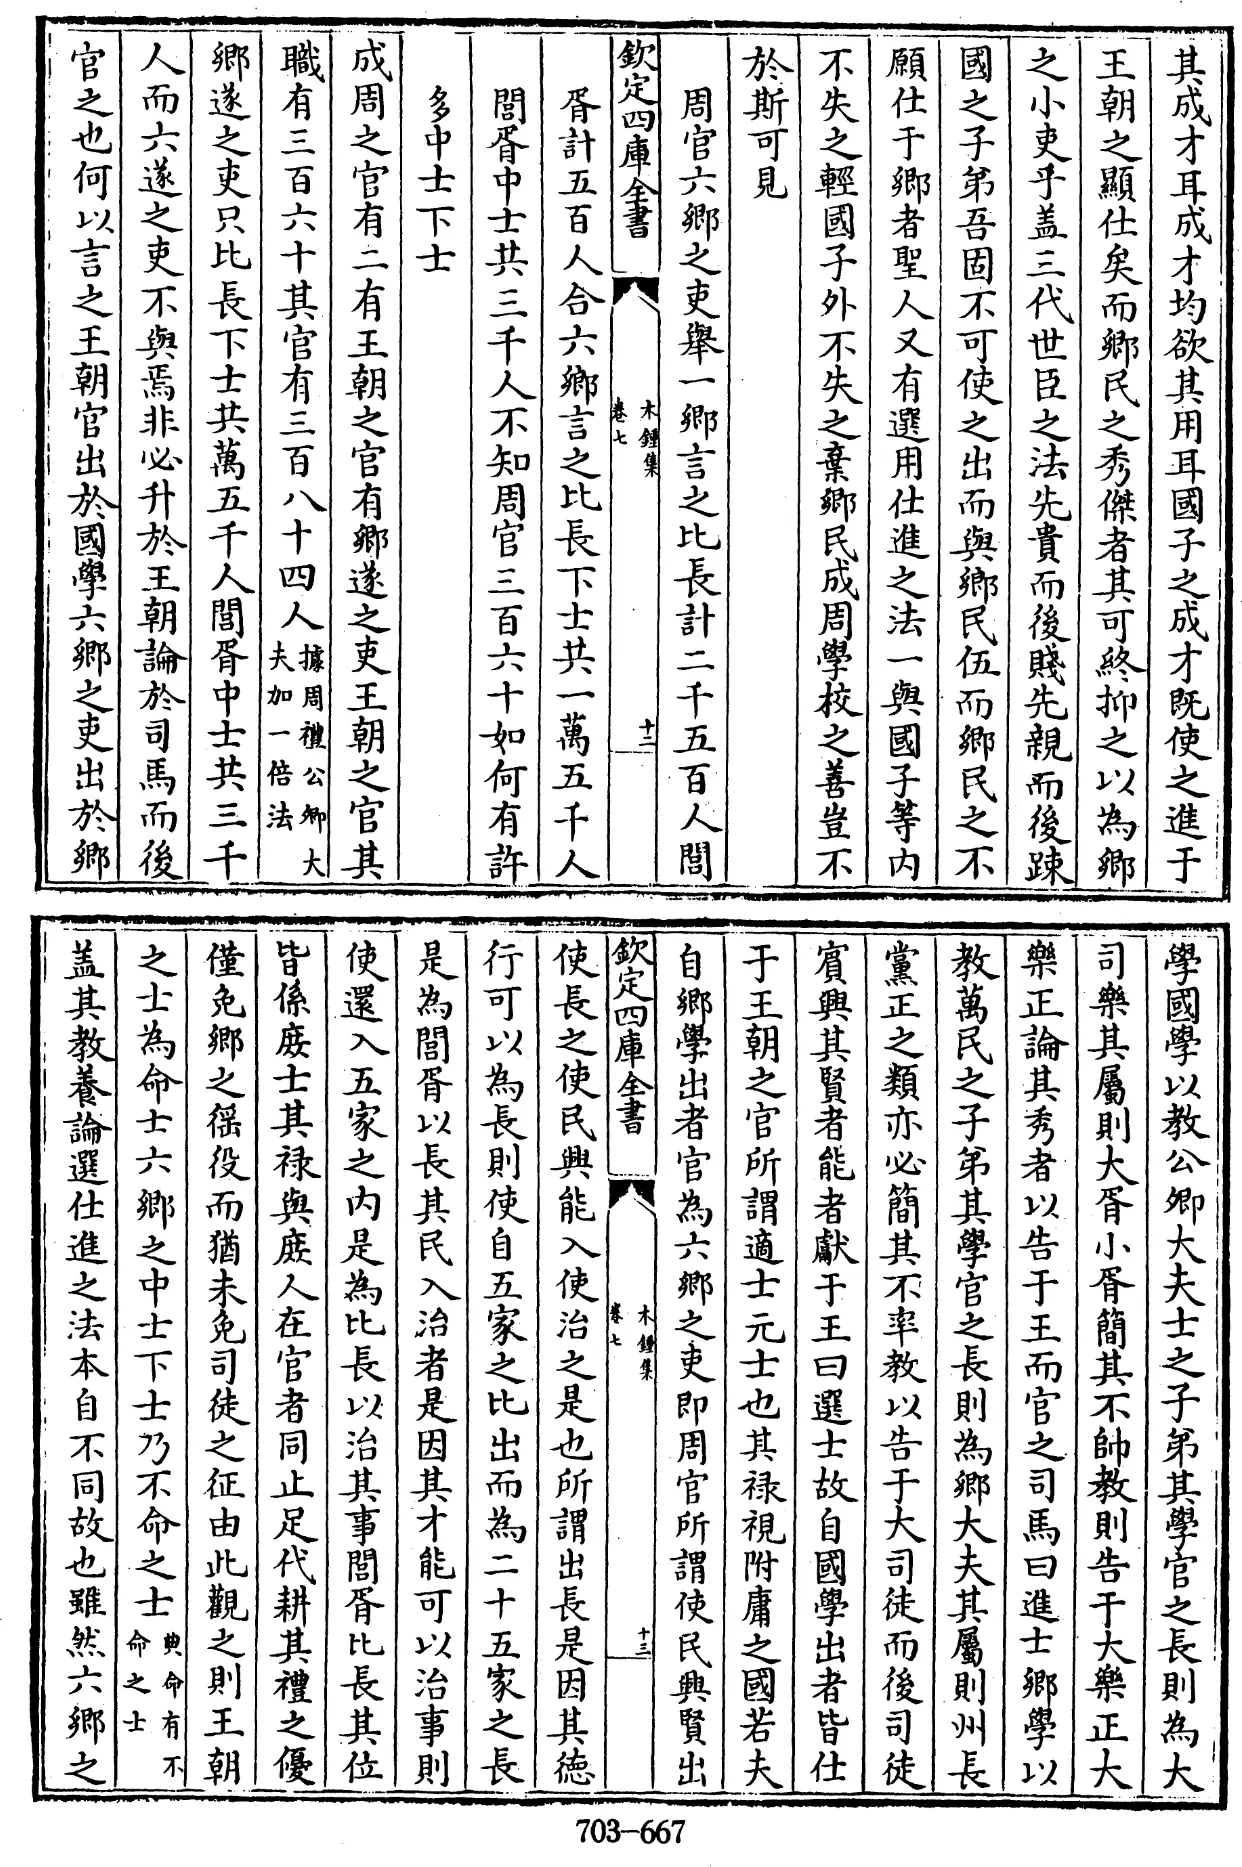 其成才耳成才均欲其用耳國子之成才既使之進于
王朝之顯仕矣而鄉民之秀傑者其可終抑之以為鄉
之小吏乎盖三代世臣之法先貴而後賤先親而後踈
國之子弟吾固不可使之出而與鄉民伍而鄉民之不
願仕于鄉者聖人又有選用仕進之法一與國子等内
不失之輕國子外不失之棄鄉民成周學校之善豈不
於斯可見
周官六鄉之吏舉一鄉言之比長計二千五百人閭
欽定四庫全書
木鍾集
卷七
十二
胥計五百人合六鄉言之比長下士共一萬五千人
閭胥中士共三千人不知周官三百六十如何有許
多中士下士
成周之官有二有王朝之官有鄉遂之吏王朝之官其
職有三百六十其官有三百八十四人據周禮公卿大夫加一倍法
鄉遂之吏只比長下士共萬五千人閭胥中士共三千
人而六遂之吏不與焉非必升於王朝論於司馬而後
官之也何以言之王朝官出於國學六鄉之吏出於鄉
學國學以教公卿大夫士之子弟其學官之長則為大
司樂其屬則大胥小胥簡其不帥教則告于大樂正大
樂正論其秀者以告于王而官之司馬曰進士鄉學以
教萬民之子弟其學官之長則為鄉大夫其屬則州長
黨正之類亦必簡其不率教以告于大司徒而後司徒
賓興其賢者能者獻于王曰選士故自國學出者皆仕
于王朝之官所謂適士元士也其禄視附庸之國若夫
自鄉學出者官為六鄉之吏即周官所謂使民興賢出
欽定四庫全書
木鍾集
卷七
十三
使長之使民興能入使治之是也所謂出長是因其德
行可以為長則使自五家之比出而為二十五家之長
是為閭胥以長其民入治者是因其才能可以治事則
使還入五家之内是為比長以治其事閭胥比長其位
皆係庻士其禄與庻人在官者同止足代耕其禮之優
僅免鄉之徭役而猶未免司徒之征由此觀之則王朝
之士為命士六鄉之中士下士乃不命之士典命有不命之士
盖其教養論選仕進之法本自不同故也雖然六鄉之
703-667